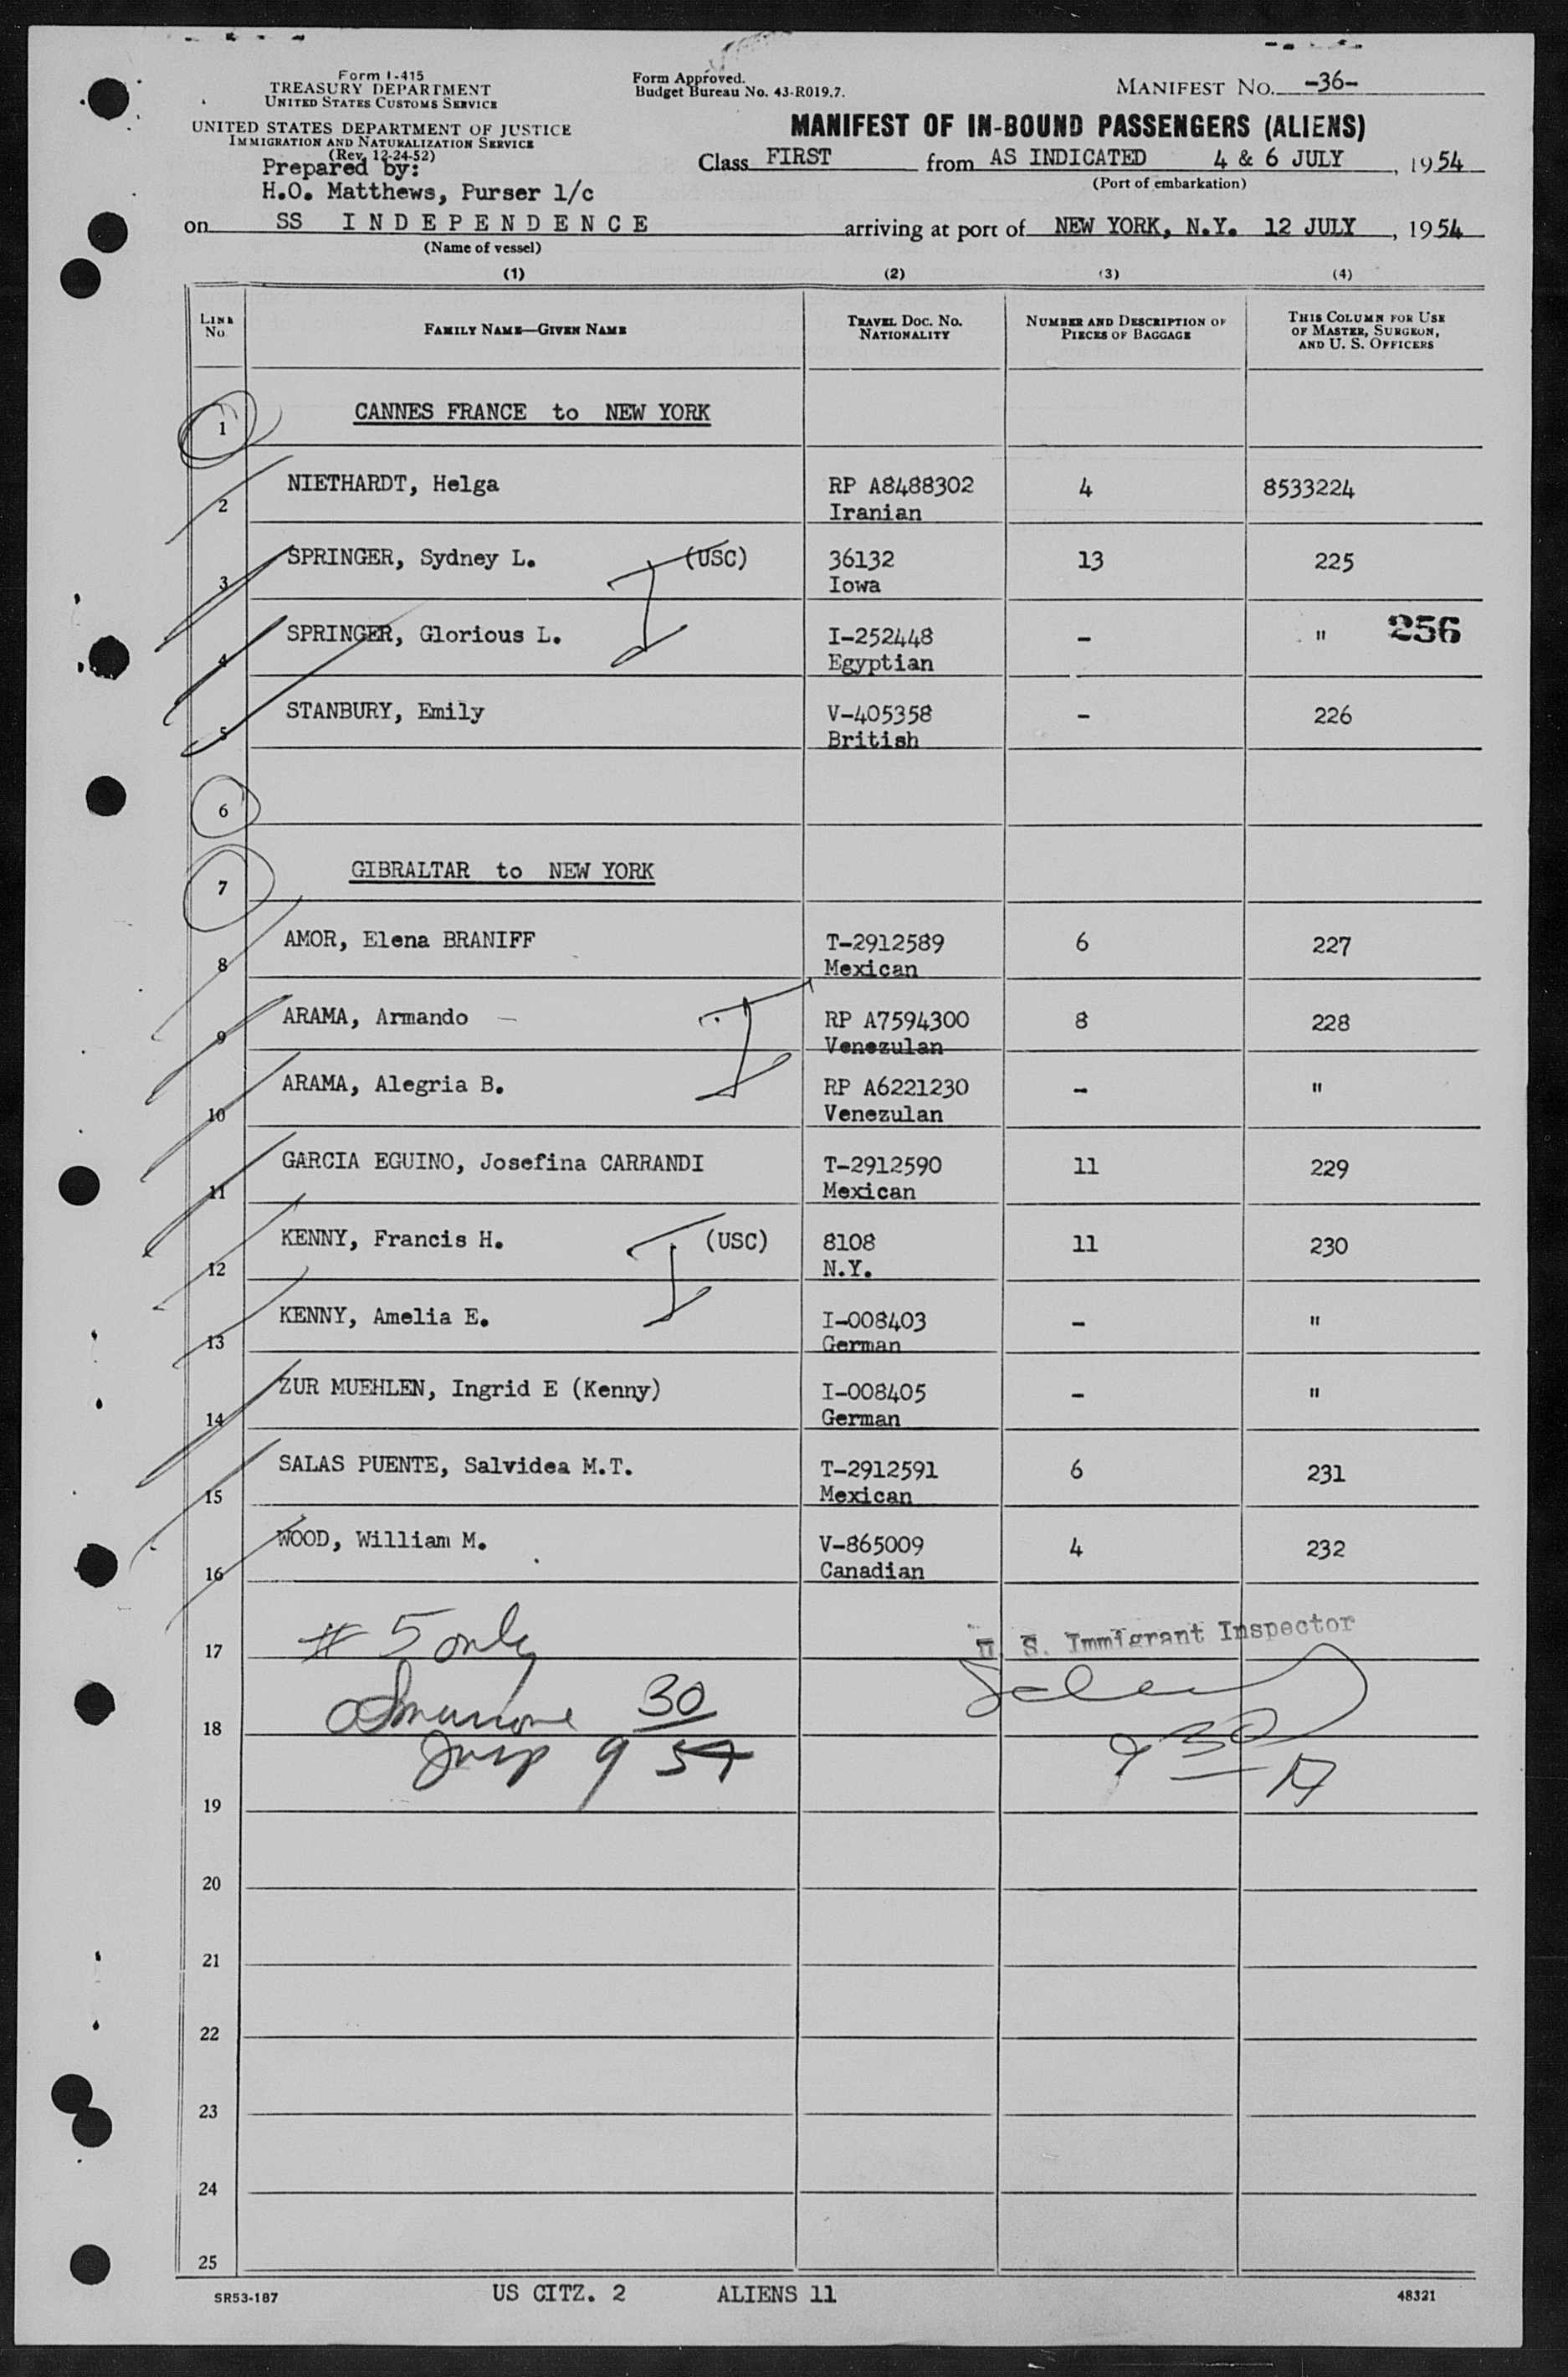 Form I-415
TREASURY DEPARTMENT
UNITED STATES CUSTOMS SERVICE
UNITED STATES DEPARTMENT OF JUSTICE
IMMIGRATION AND NATURALIZATION SERVICE
(Rev. 12-24-52)
Prepared by:
H.O. Matthews, Purser 1/c
Form Approved.
Budget Bureau No. 43-R019.7.
MANIFEST NO. -36-
MANIFEST OF IN-BOUND PASSENGERS (ALIENS)
Class FIRST from AS INDICATED 4 & 6 JULY, 1954
(Port of embarkation)
on SS INDEPENDENCE arriving at port of NEW YORK, N.Y. 12 JULY, 1954
(Name of vessel)
(1) (2) (3) (4)
LINE No. FAMILY NAME—GIVEN NAME TRAVEL DOC. NO. NATIONALITY NUMBER AND DESCRIPTION OF PIECES OF BAGGAGE THIS COLUMN FOR USE OF MASTER, SURGEON, AND U. S. OFFICERS
1 CANNES FRANCE to NEW YORK
2 NIETHARDT, Helga RP A8488302 4 8533224
Iranian
3 SPRINGER, Sydney L. (USC) 36132 13 225
Iowa
4 SPRINGER, Glorious L. I-252448 - " 256
Egyptian
5 STANBURY, Emily V-405358 - 226
British
6
7 GIBRALTAR to NEW YORK
8 AMOR, Elena BRANIFF T-2912589 6 227
Mexican
9 ARAMA, Armando RP A7594300 8 228
Venezulan
10 ARAMA, Alegria B. RP A6221230 - "
Venezulan
11 GARCIA EGUINO, Josefina CARRANDI T-2912590 11 229
Mexican
12 KENNY, Francis H. (USC) 8108 11 230
N.Y.
13 KENNY, Amelia E. I-008403 - "
German
14 ZUR MUEHLEN, Ingrid E (Kenny) I-008405 - "
German
15 SALAS PUENTE, Salvidea M.T. T-2912591 6 231
Mexican
16 WOOD, William M. V-865009 4 232
Canadian
17 # 5 only U. S. Immigrant Inspector
18 30
9 54 9 30
19
20
21
22
23
24
25
SR53-187 US CITZ. 2 ALIENS 11 48321